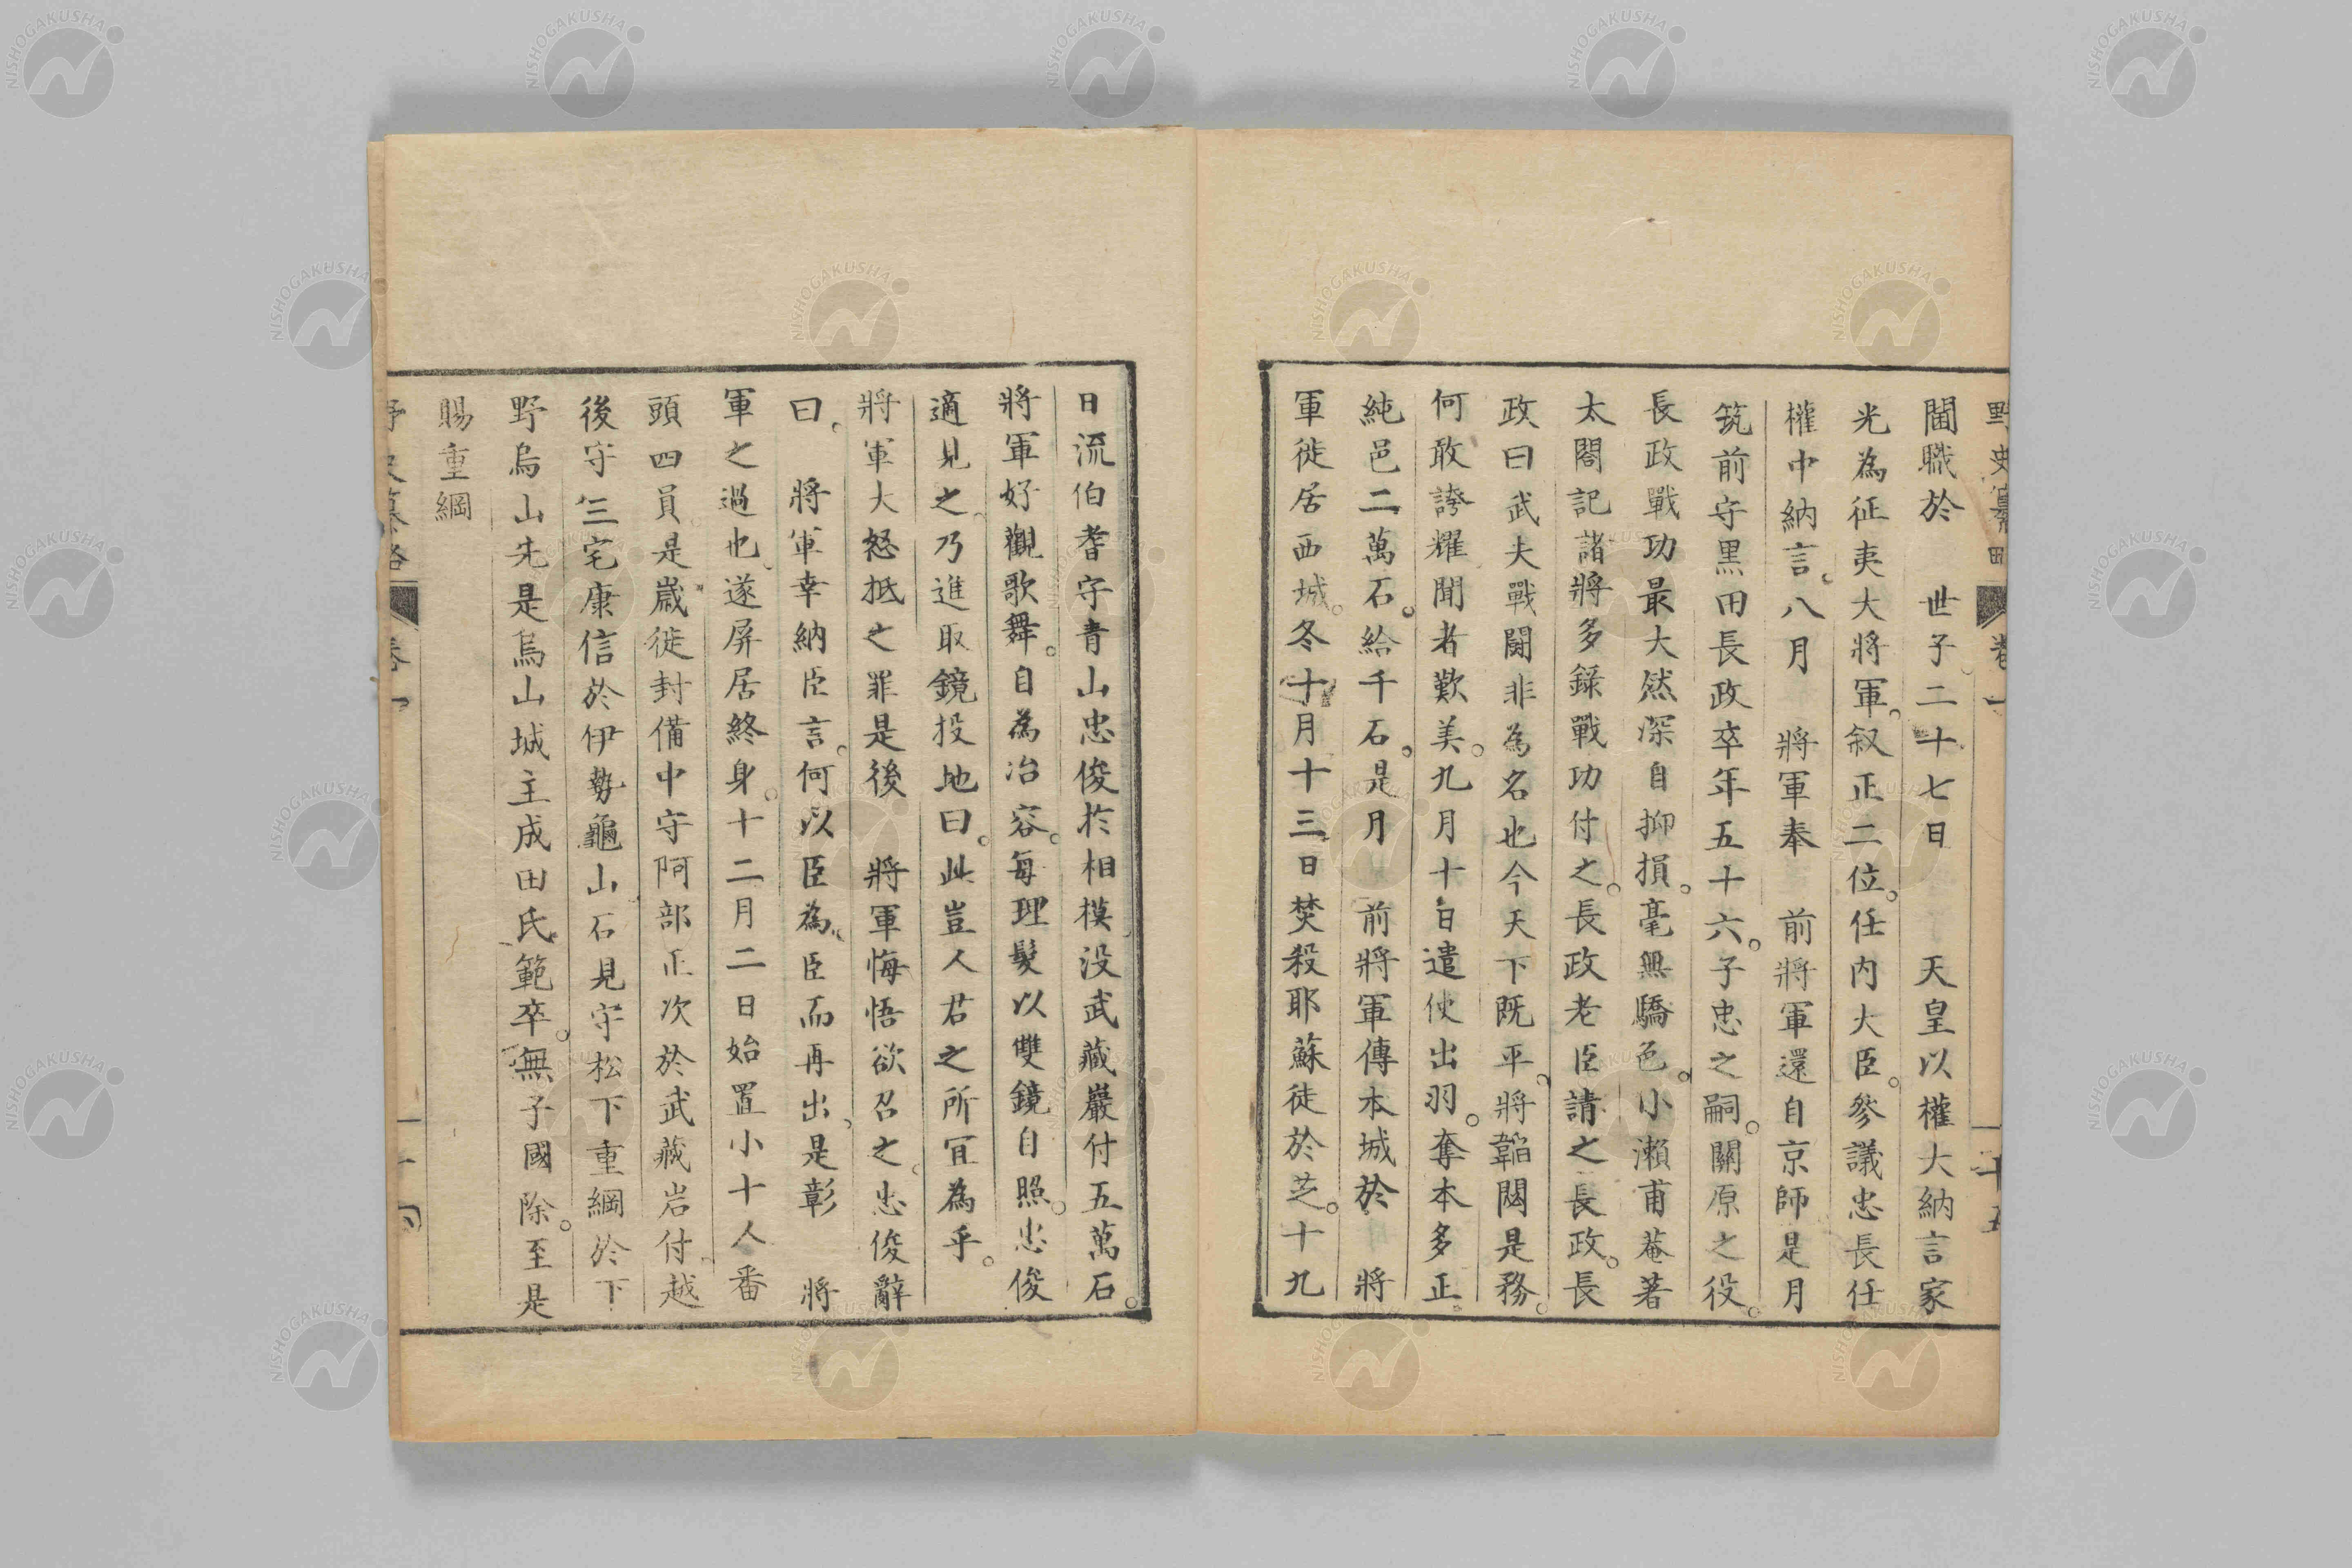 野史纂略 卷一 二十五
閫職於　世子二十七日　　天皇以權大納言家
光為征夷大將軍。叙正二位。任内大臣。參議忠長任
權中納言。八月　將軍奉　前將軍還自京師是月
筑前守黑田長政卒年五十六。子忠之嗣。關原之役。
長政戰功最大然深自抑損。毫無驕色。小瀨甫菴著
太閤記諸將多錄戰功付之。長政老臣請之長政。長
政曰武夫戰鬪非為名也今天下既平。將韜閟是務。
何敢誇耀聞者歎美。九月十日遣使出羽。奪本多正
純邑二萬石。給千石。是月　前將軍傳本城於　將
軍徙居西城。冬十月十三日焚殺耶蘇徒於芝。十九
日流伯耆守青山忠俊於相模没武藏巖付五萬石。
將軍好觀歌舞。自為冶容。每理髮以雙鏡自照。忠俊
適見之。乃進取鏡投地曰。此豈人君之所宜為乎。
將軍大怒抵之罪是後　將軍悔悟欲召之。忠俊辭
曰。　將軍幸納臣言。何以臣為。臣而再出。是彰　將
軍之過也。遂屏居終身。十二月二日始置小十人番
頭四員。是歲徙封備中守阿部正次於武藏岩付。越
後守三宅康信於伊勢龜山。石見守松下重綱於下
野烏山先是烏山城主成田氏範卒。無子國除。至是
賜重綱
野史纂略 卷一